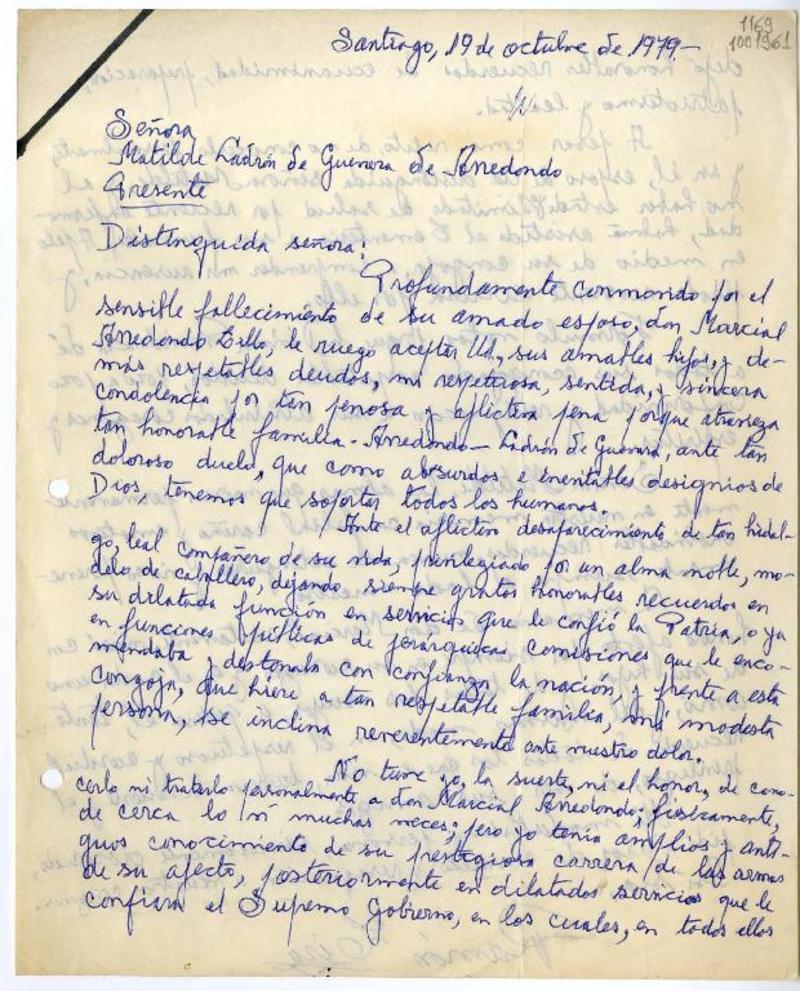 1169
1001961
Santiago, 19 de octubre de 1979.-
Señora
Matilde Ladrón de Guevara de Arredondo
Presente
Distinguida señora:
Profundamente conmovido por el
sensible fallecimiento de su amado esposo, don Marcial
Arredondo Lillo, le ruego aceptar Ud., sus amables hijos, y de-
más respetables deudos, mi respetuosa, sentida, y sincera
condolencia por tan penosa y aflictiva pena porque atraviesa
tan honorable familia - Arredondo - Ladrón de Guevara, ante tan
doloroso duelo, que como absurdos e inevitables designios de
Dios, tenemos que soportar todos los humanos.
Ante el aflictivo desaparecimiento de tan hidal-
go, leal compañero de su vida, privilegiado por un alma noble, mo-
delo de caballero, dejando siempre gratos honorables recuerdos en
su dilatada función en servicios que le confió la Patria, o ya
en funciones públicas de jerárquicas comisiones que le enco-
mendaba y destonaba con confianza la nación, y frente a esta
congoja, que hiere a tan respetable familia, mi modesta
persona, se inclina reverentemente ante vuestro dolor.
No tuve yo, la suerte, ni el honor, de cono-
cerlo ni tratarlo personalmente a don Marcial Arredondo; físicamente,
de cerca lo ví muchas veces; pero yo tenía amplios y anti-
guos conocimiento de su prestigiosa carrera de las armas
de su afecto, posteriormente en dilatados servicios que le
confiara el Supremo Gobierno, en los cuales, en todos ellos